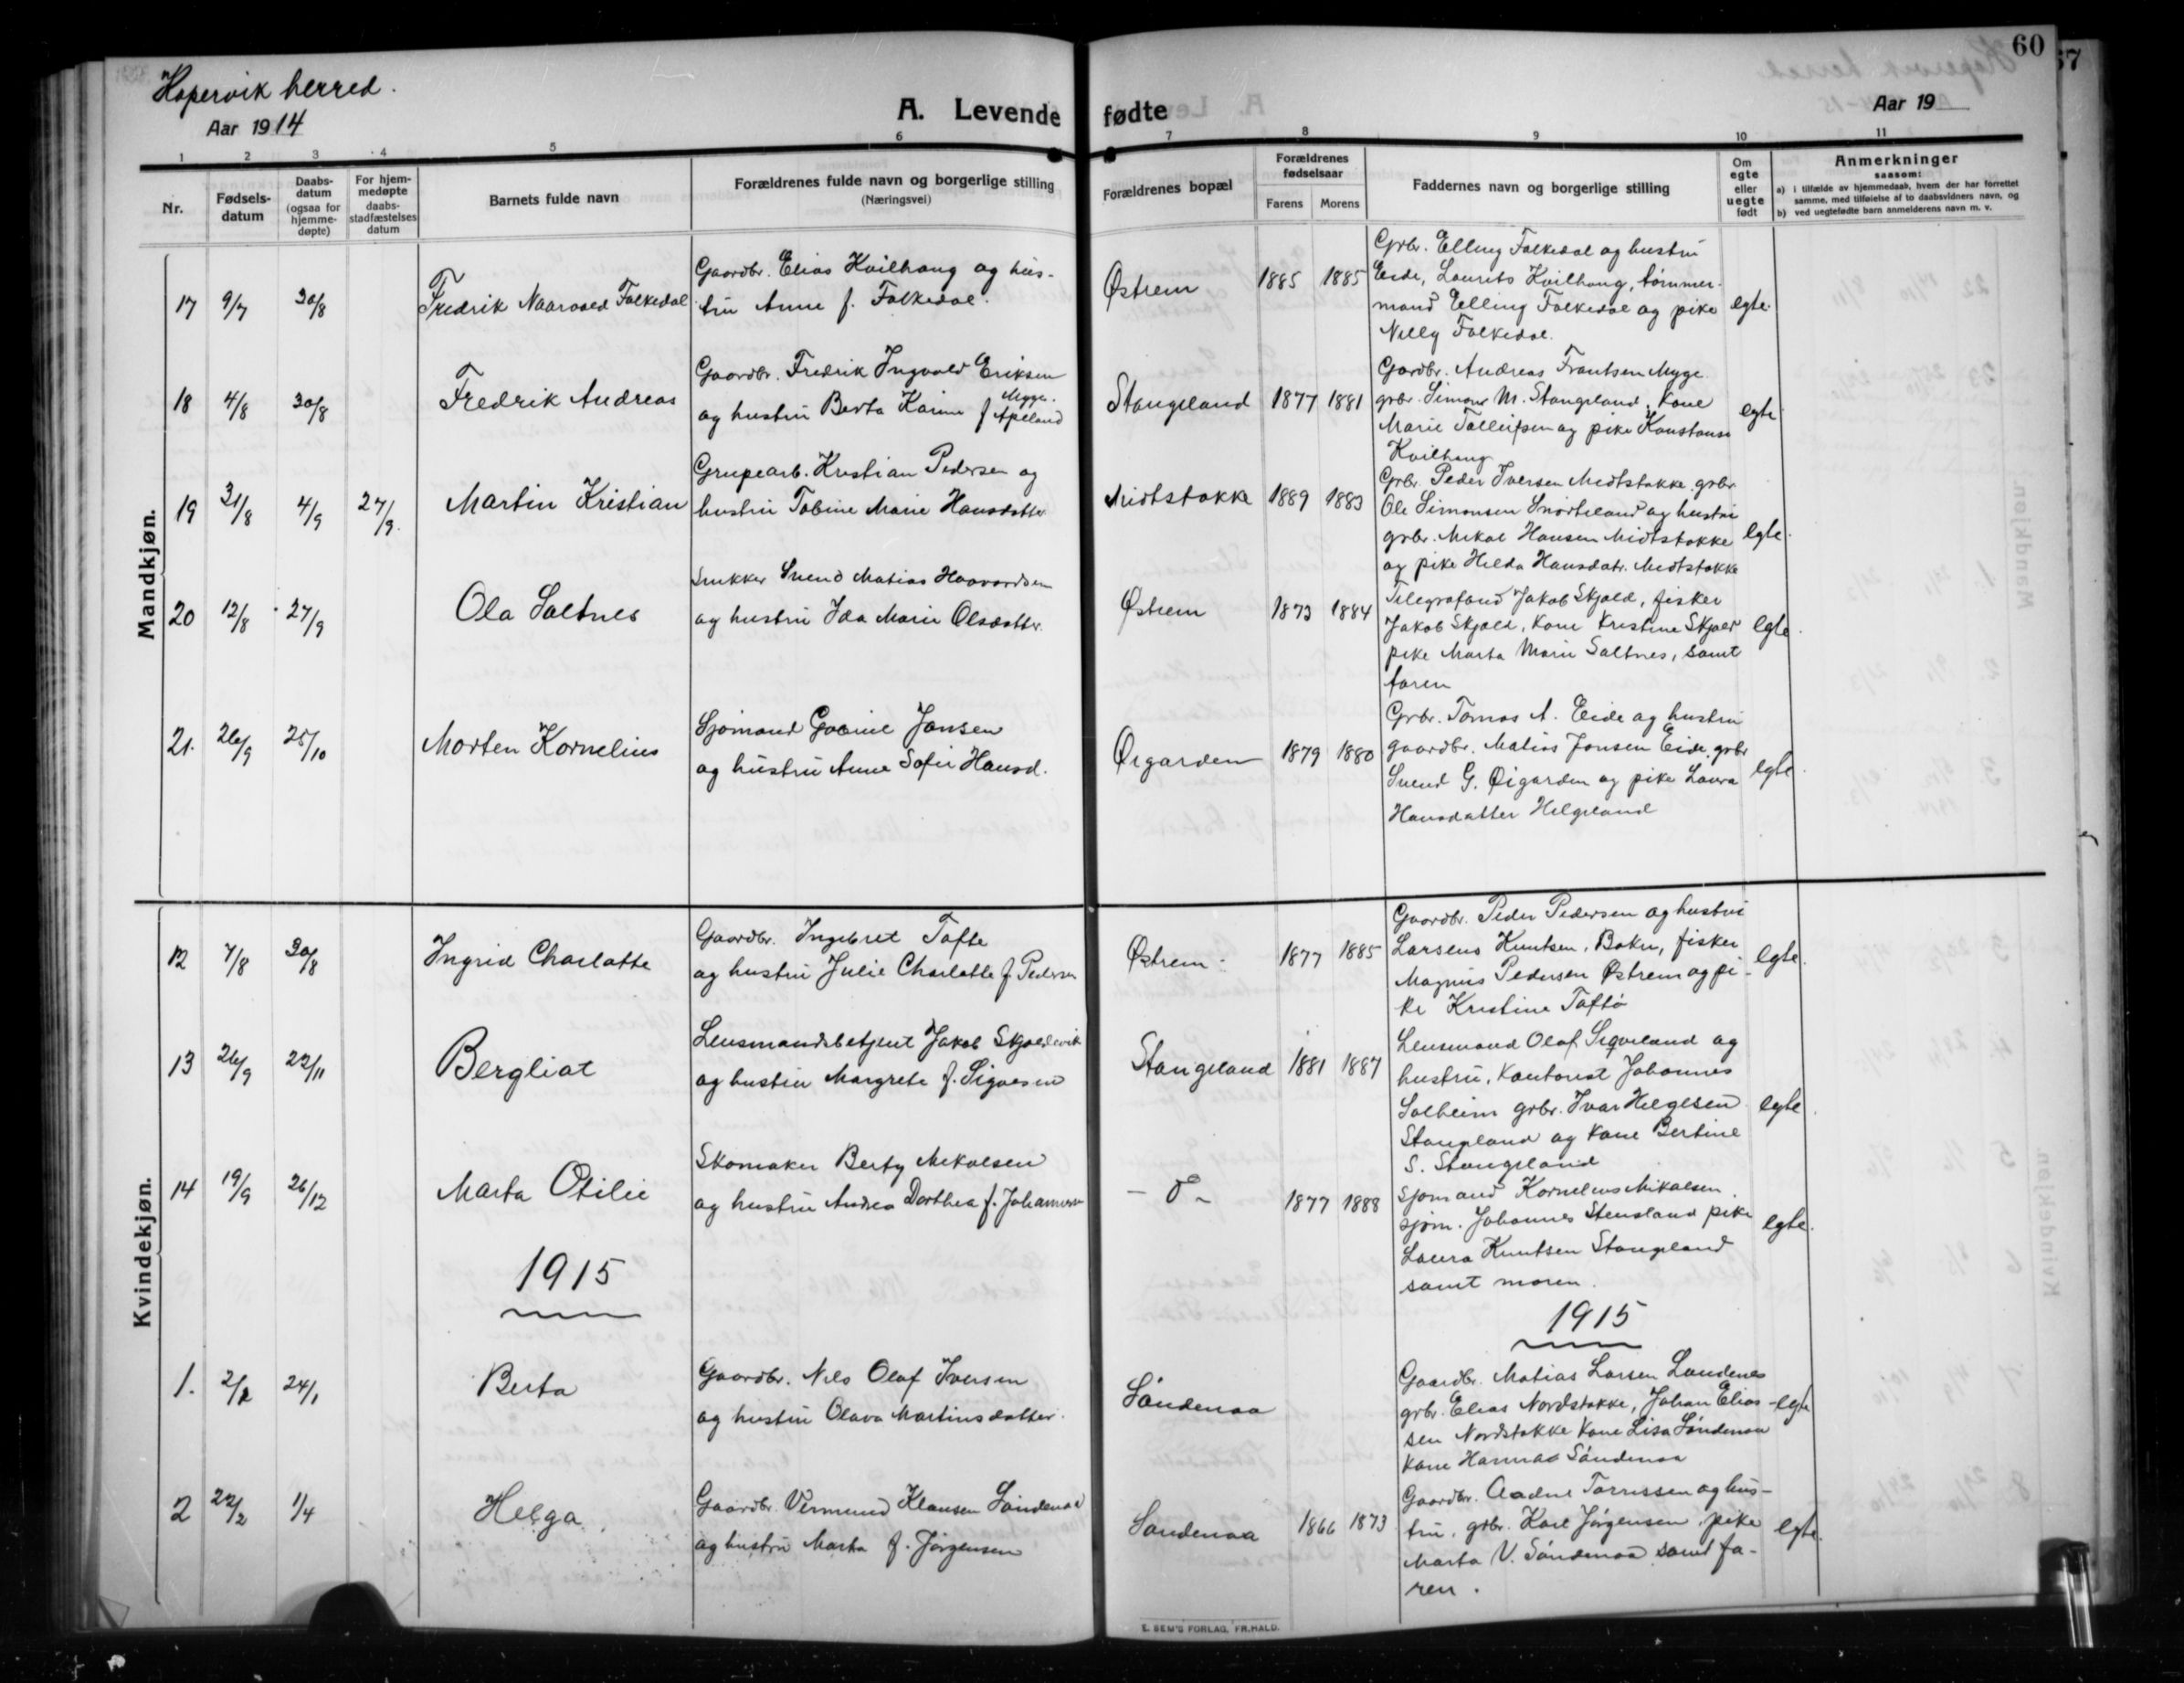 Kopervik herred.
Aar 1914
A. Levende fødte
Aar 19
60
67
1 2 3 4 5 6 7 8 9 10 11
Nr.
Fødsels-datum
Daabs-datum (ogsaa for hjemme-døpte)
For hjem-medøpte daabs-stadfæstelses datum
Barnets fulde navn
Forældrenes fulde navn og borgerlige stilling
(Næringsvei)
Forældrenes bopæl
Forældrenes fødselsaar
Farens Morens
Faddernes navn og borgerlige stilling
Om egte eller uegte født
Anmerkninger
saasom:
a) i tilfælde av hjemmedaab, hvem der har forrettet samme, med tilføielse af to daabsvidners navn, og
b) ved uegtefødte barn anmelderens navn m. v.
Mandkjøn.
17 9/7 30/8 Fredrik Falkedal
Gaardbr. Elias Kvilhaug og hus-
tru Anne f. Falkedal.
Østrem 1885 1885
Grbr. Elling Falkedal og hustru
Eide, Laurits Kvilhaug, tømmer-
mand Elling Falkedal og pike
Nelly Falkedal.
egte.
18 4/8 30/8 Fredrik Andreas
Gaardbr. Fredrik Ingvald Eriksen
Myge.
og hustru Berta Karine f Apeland
Stangeland 1877 1881
Gardbr. Andreas Frantsen Myge
grbr. Simon M. Stangeland, Kone
Marie Tolleifsen og pike Konstanse
Kvilhaug
egte
19 31/8 4/9 27/9. Martin Kristian
Grupearb. Kristian Pedersen og
hustru Tobine Marie Hansdatter
Midtstokke 1889 1883
Grbr. Peder Iversen Midtstokke, grbr
Ole Simonsen Snørteland og hustru
grbr. Mikal Hansen Midtstokke
og pike Helda Hansdatr. Midtstokke
egte.
20 12/8 27/9 Ola Saltnes
Snekker Svend Matias Haavardsen
og hustru Ida Marie Olsdatter.
Østrem 1873 1884
Jakob Skjold, fisker
Jakob Skjold, Kone Kristine Skjold
pike Marta Marie Saltnes, samt
faren
egte.
21. 26/9 25/10 Morten Kornelius
Sjømand Jansen
og hustru Anne Sofie Hansd.
Øigarden 1879 1880
Grbr. Tomas A. Eide og hustru
gaardbr. Matias Jonsen Eide, grbr
Svend G. Øigarden og pike Laura
Hansdatter Helgeland
egte.
Kvindekjøn.
12 7/8 30/8 Ingrid Charlatte
Gaardbr. Ingebret Tofte
og hustru Julie Charlotte f Pedersen
Østrem 1877 1885
Gaardbr. Peder Pedersen og hustru
Larsens Knutsen, Bokn, fisker
Magnus Pedersen Østrem og pi-
ke Kristine Toftø
egte.
13 26/9 22/11 Bergliot
Lensmandsbetjent Jakob Skjoldevik
og hustru Margrete f. Sigvesen
Stangeland 1881 1887
Lensmand Olaf Sigveland og
hustru, Kontorist Johannes
Solheim grbr. Ivar Helgesen
Stangeland og Kone Bertine
S. Stangeland
egte.
14 19/9 26/12 Marta Otilie
Skomaker Berty Mikalsen
og hustru Andrea Dorthea f. Johannesen
- do - 1877 1888
Sjømand Kornelius Mikalsen.
sjøm. Johannes Stensland pike
Laura Knutsen Stangeland
samt moren.
egte.
1915
1915
1. 2/2 24/1 Berta
Gaardbr. Nils Olaf Iversen
og hustru Olava Martinsdatter.
Søndenaa
Gaardbr. Matias Larsen Landenes
grbr. Elias Nordstokke, Johan Elias-
sen Nordstokke Kone Lisa Søndenaa
Kone Hanna Søndenaa
egte
2 22/2 1/4 Helga
Gaardbr. Vermund Klausen Søndenaa
og hustru Marta f. Jørgensen
Søndenaa 1866 1873
Gaardbr. Aadne Torrissen og hus-
tru, grbr. Karl Jørgensen, pike
Marta V. Søndenaa samt fa-
ren.
egte.
E. SEM'S FORLAG, FR.HALD.